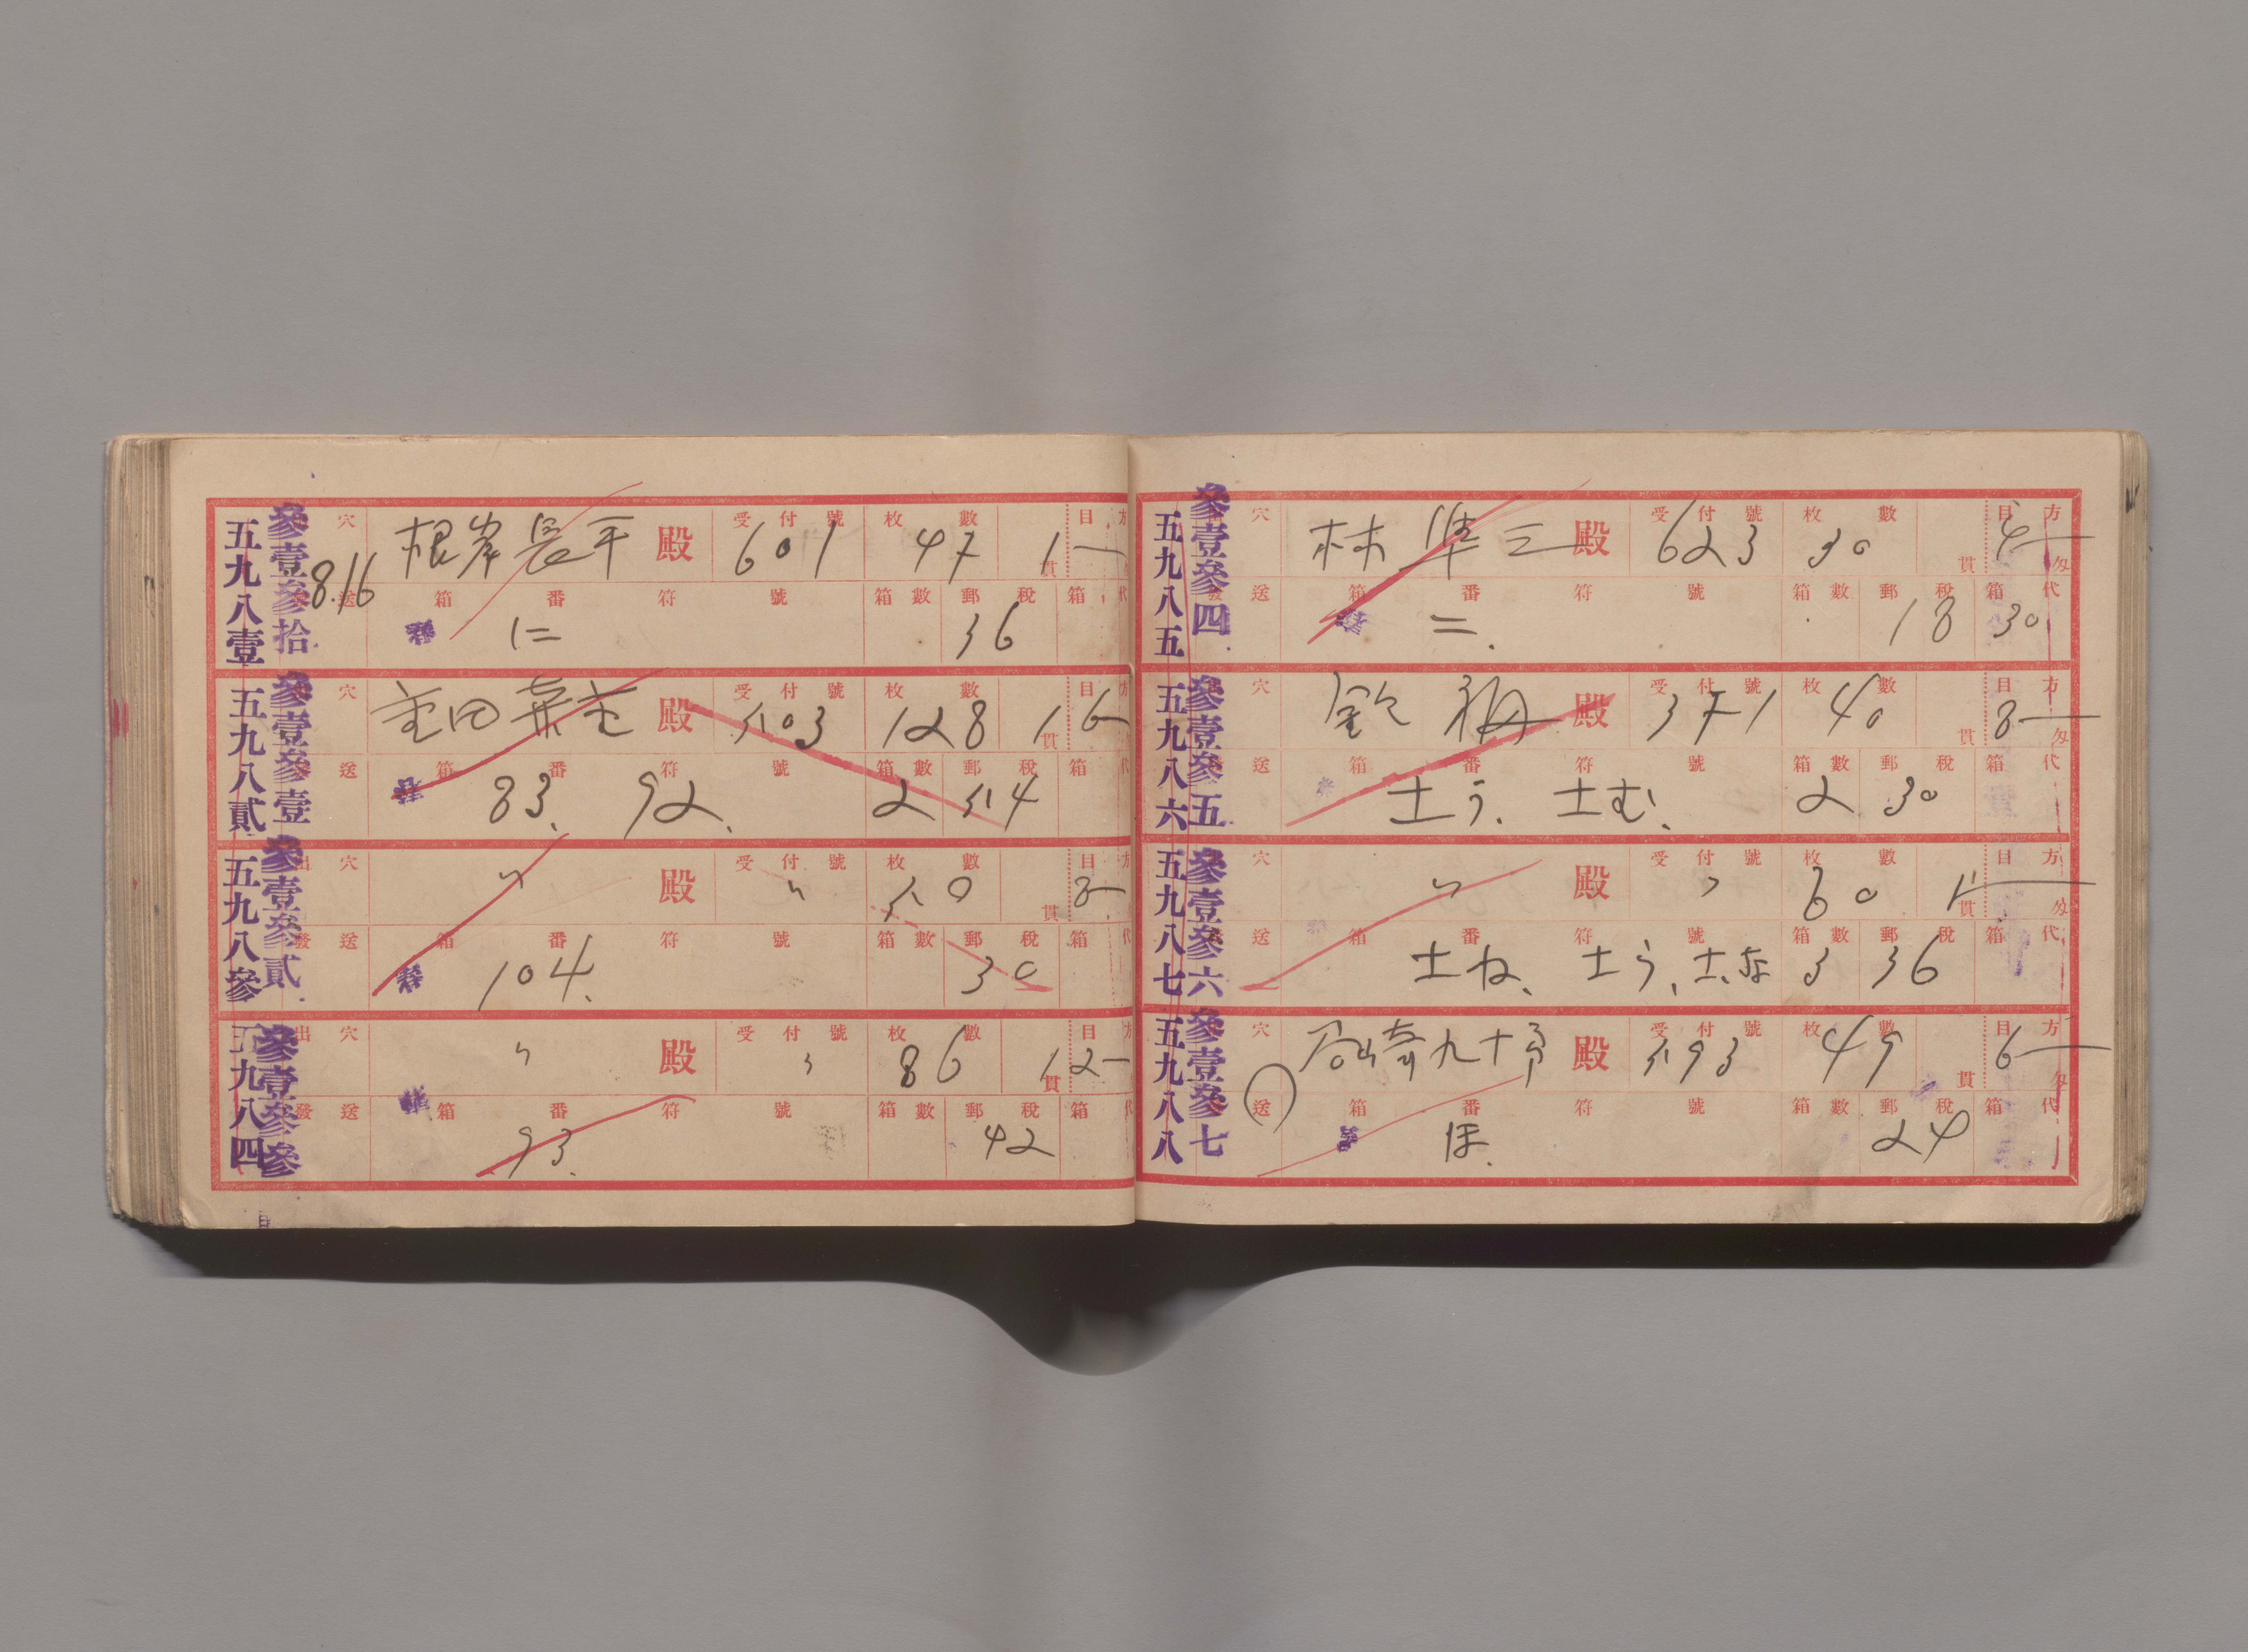 五九八壹 參壹參拾 穴 根岸長平 殿 受付號 601 枚數 47 貫 1 目方
8.16 送 箱番符號 に 箱數 郵稅 36 箱代
五九八貳 參壹參壹 穴 殿 受付號 503 枚數 128 貫 1 目方 6
送 箱番符號 83. 92. 箱數 2 郵稅 54 箱代
五九八參 參壹參貳 出穴 〃 殿 受付號 〃 枚數 50 貫 目方 8
發送 箱番符號 104. 箱數 郵稅 30 箱代
五九八四 參壹參參 出穴 〃 殿 受付號 〃 枚數 86 貫 1 目方 2
發送 箱番符號 93. 箱數 郵稅 42 箱代
五九八五 參壹參四 穴 林 準三 殿 受付號 623 枚數 30 貫 目方 4 匁
送 箱番符號 二. 箱數 郵稅 18 箱代 30
五九八六 參壹參五 穴 殿 受付號 371 枚數 40 貫 目方 8 匁
送 箱番符號 土う. 土む. 箱數 2 郵稅 30 箱代
五九八七 參壹參六 穴 〃 殿 受付號 〃 枚數 60 貫 目方 匁
送 箱番符號 土ね、土う、土な 箱數 3 郵稅 36 箱代
五九八八 參壹參七 穴 殿 受付號 593 枚數 49 貫 目方 6 匁
送 箱番符號 ほ. 箱數 郵稅 24 箱代